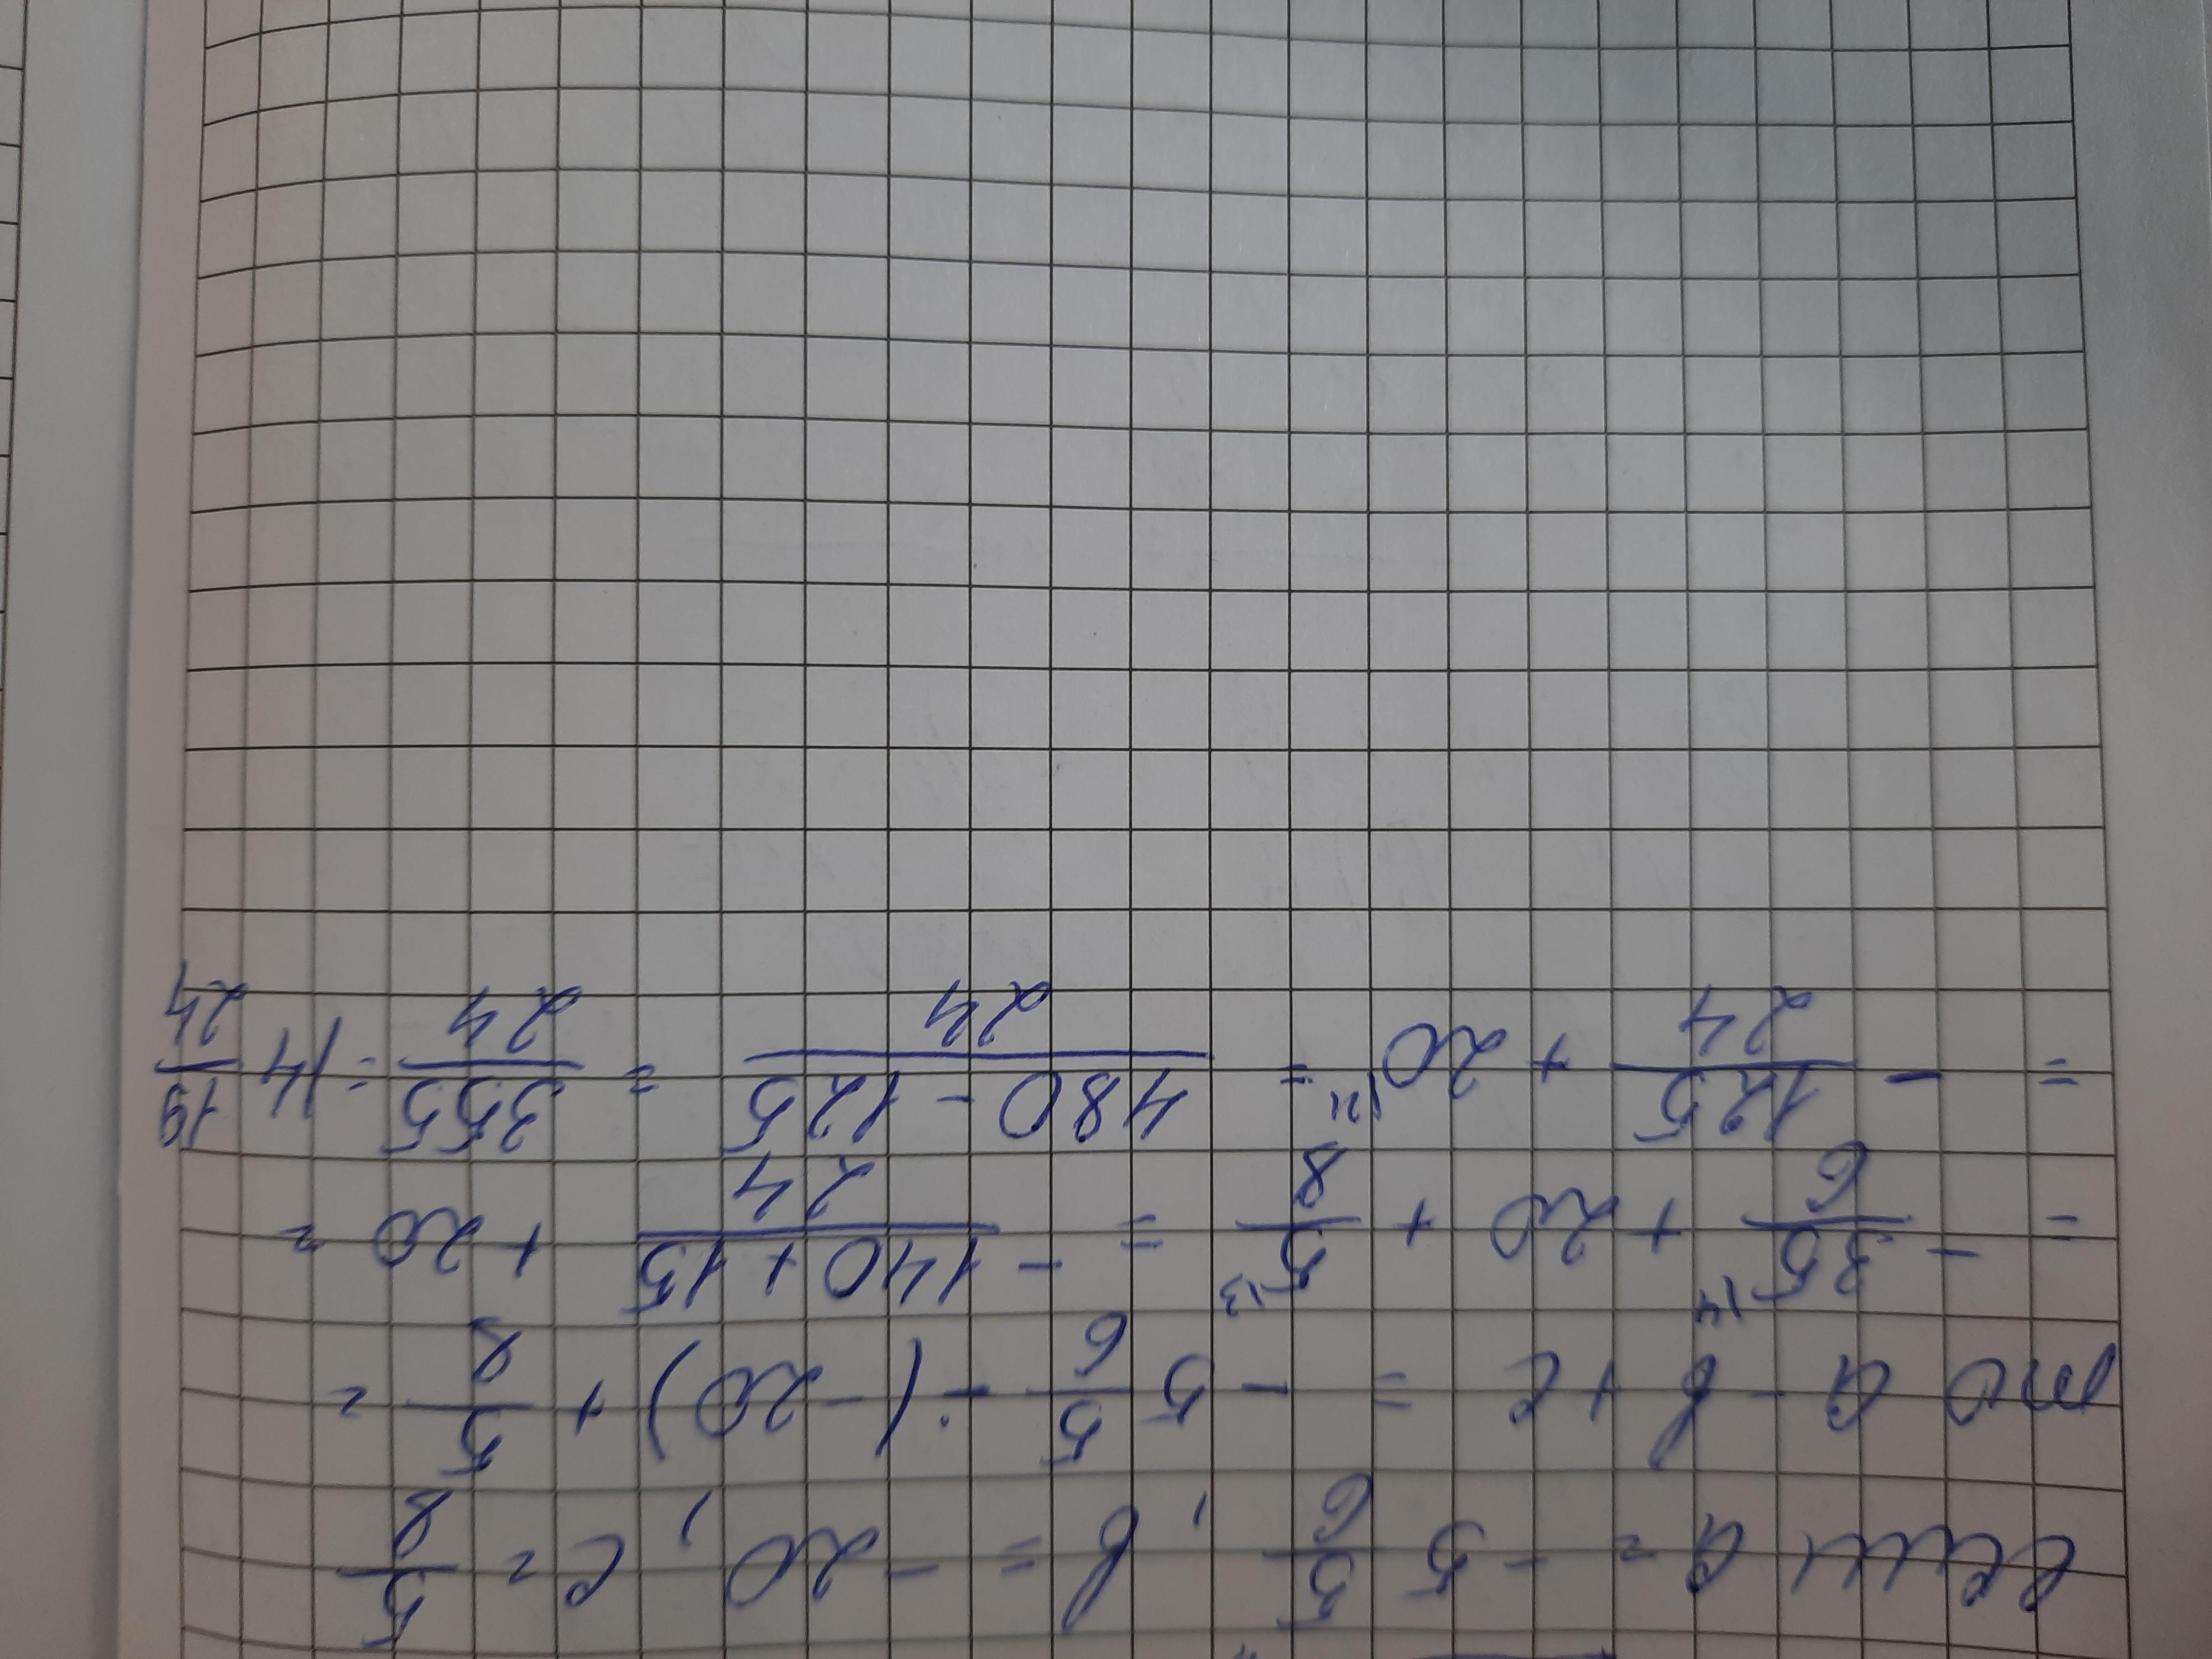 если a = - 5 5/6, b = - 20, c = 5/8
то a - b + c = - 5 5/6 - (- 20) + 5/8 =
= - 35/6 |4 + 20 + 5/8 |3 = (- 140 + 15)/24 + 20 =
= - 125/24 + 20 |24 = (480 - 125)/24 = 355/24 = 14 19/24